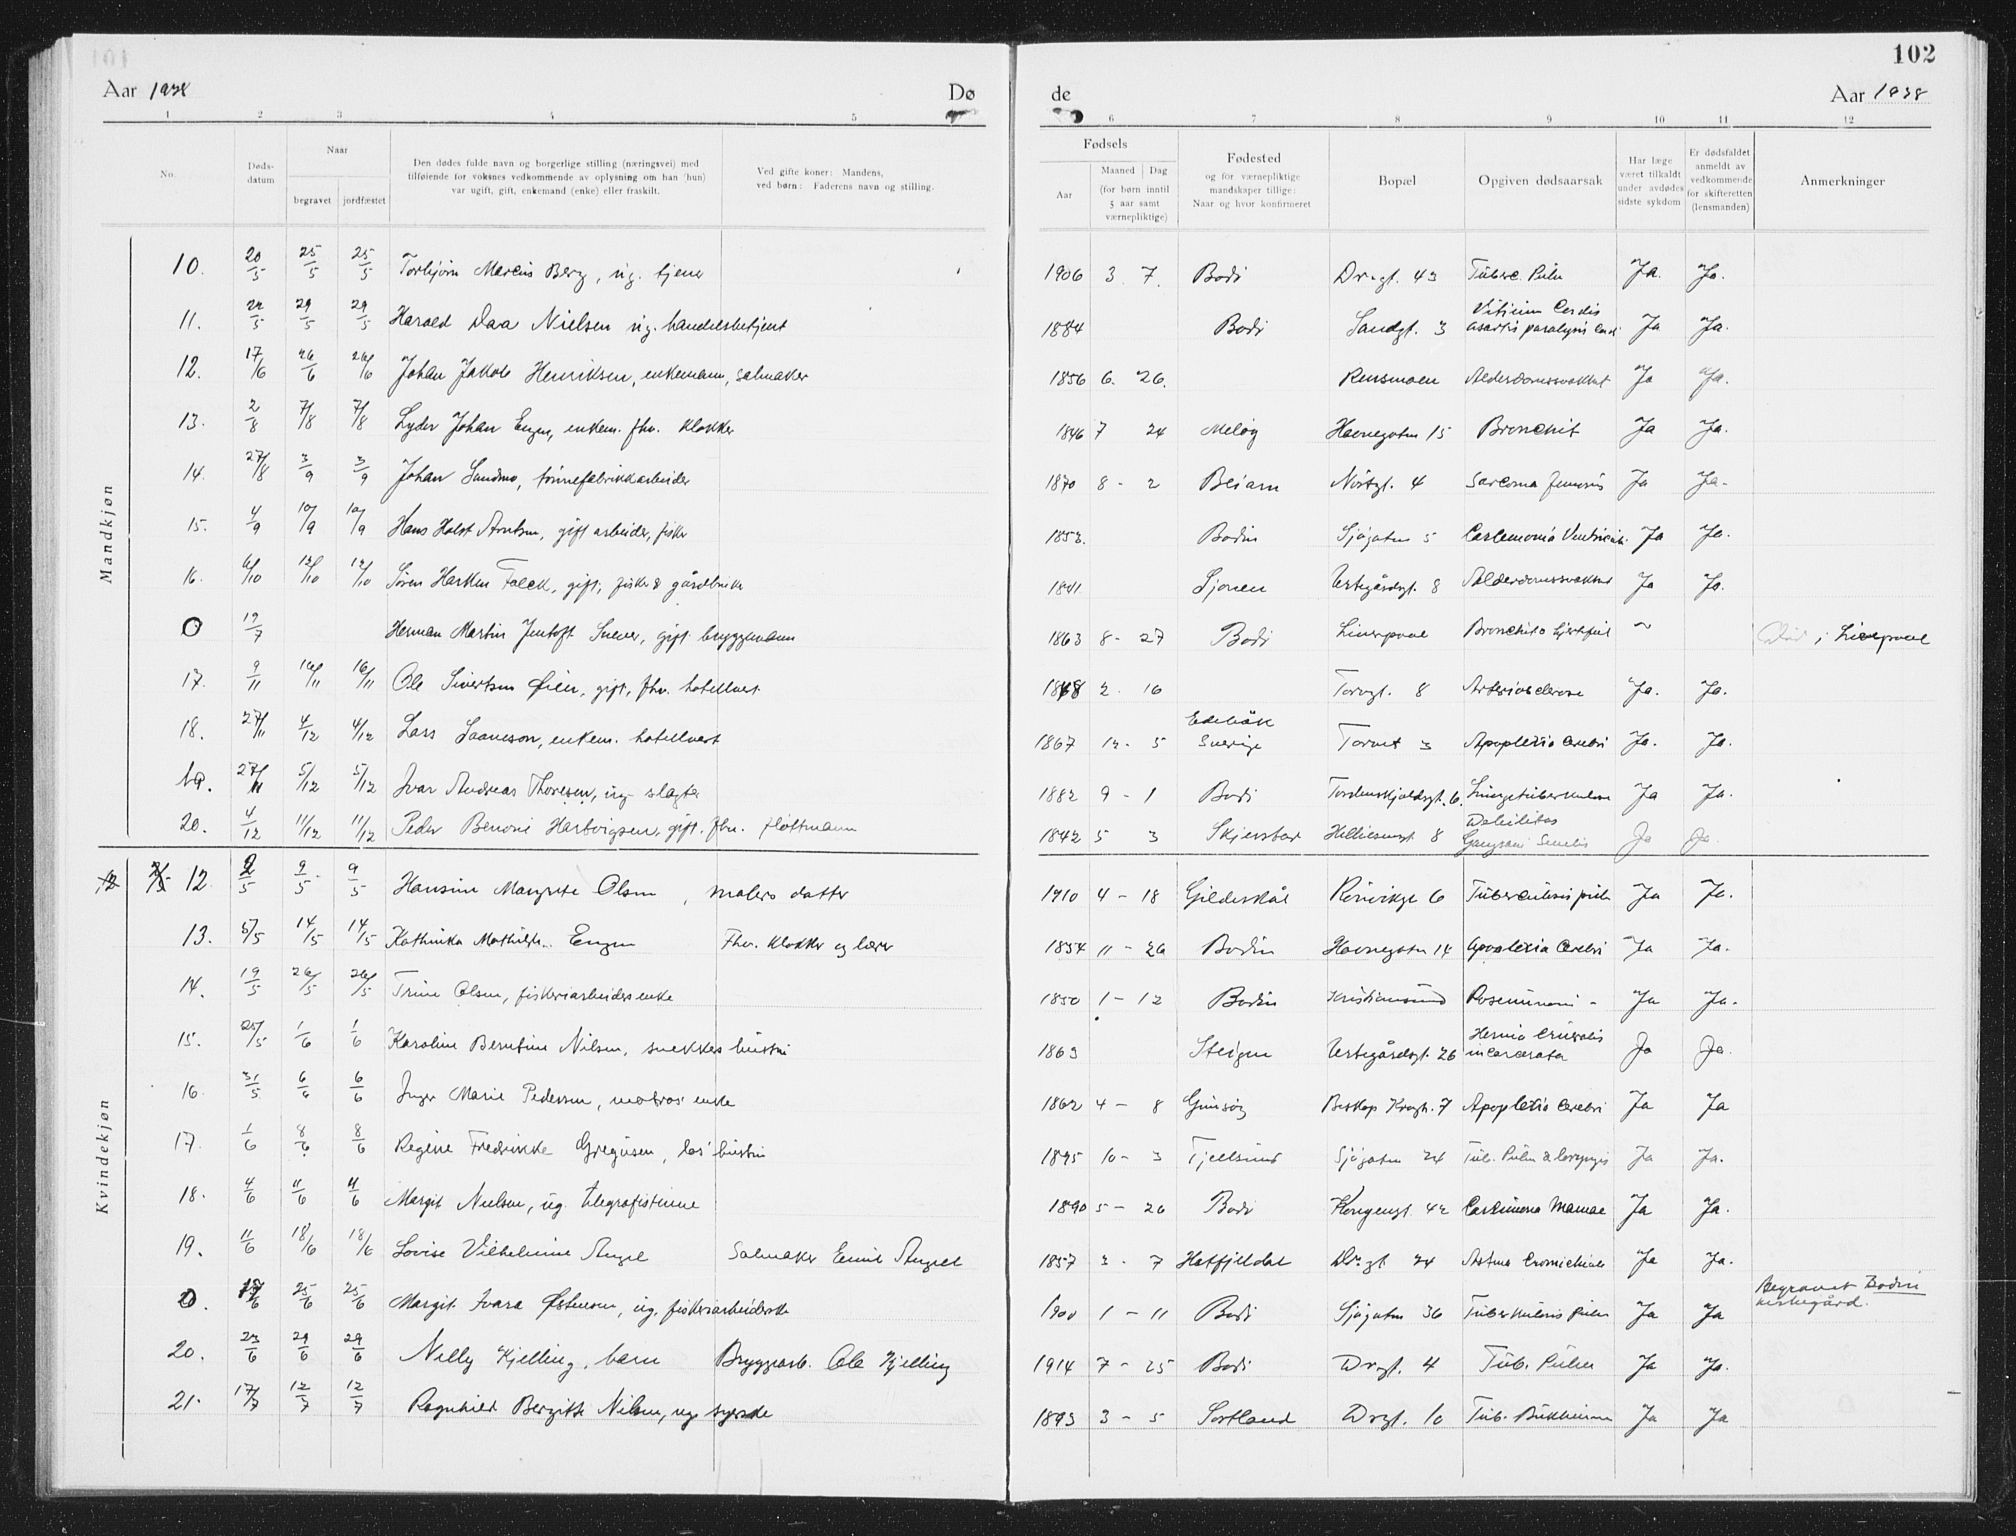 102
Aar 1928
Dø
de
Aar 1928
1 2 3 4 5
6 7 8 9 10 11 12
No.
Døds-
datum
Naar
begravet
jordfæstet
Den dødes fulde navn og borgerlige stilling (næringsvei) med
tilføiende for voksnes vedkommende av oplysning om han (hun)
var ugift, gift, enkemand (enke) eller fraskilt.
Ved gifte koner: Mandens,
ved børn: Faderens navn og stilling.
Fødsels
Aar
Maaned | Dag
(for børn inntil
5 aar samt
værnepliktige)
Fødested
og for værnepliktige
mandskaper tillige:
Naar og hvor konfirmeret
Bopæl
Opgiven dødsaarsak
Har læge
været tilkaldt
under avdødes
sidste sykdom
Er dødsfaldet
anmeldt av
vedkommende
for skifteretten
(lensmanden)
Anmerkninger
Mandkjøn
10. 20/5 25/5 25/5 Torbjørn Marcus Berg, ug. tjener 1906 3. 7. Bodø Dr.gt. 43 Tuberc. Pulm Ja. Ja.
11. 29/5 29/5 Harald Daa Nielsen ug. handelsbetjent 1884 Bodø Sandgt. 3 Vitium Cordis paralysis Cord Ja Ja.
12. 17/6 26/6 26/6 Johan Jakob Henriksen, enkemann, salmaker 1856 6. 26. Rensmoen Alderdomssvakhet Ja Ja.
13. 2/8 7/8 7/8 Lyder Johan Engen, enkem. fhv. klokker 1846 7 24 Meløy Havnegaten 15 Bronchit Ja Ja.
14. 27/8 3/9 3/9 Johan Sandmo, tønnefabrikkarbeider 1870 8 - 2 Beiarn Nörtgt. 4 Sarcoma femoris Ja Ja.
15. 4/9 10/9 10/9 Hans Holst Arntsen, gift arbeider, fisker 1853. Bodin Sjøgaten 5 Ventriculi. Ja Ja.
16. 6/10 12/10 12/10 Søren Falck, gift, fisker & gårdbruker 1841 Sjonen 8 Alderdomssvakhet Ja Ja.
0 19/7 Herman Martin Jentoft gift bryggemann 1863 8 - 27 Bodø Liverpool Bronchit & hjertefeil ~ Död i Liverpool
17. 9/11 16/11 16/11 Ole Sivertsen Øien, gift, fhv. hotellvert 2. 16 Torvgt. 8 Arteriosclerose Ja. Ja.
18. 27/11 4/12 4/12 Lars enkem. hotellvert 1867 12 - 5 Sverige Torvet 3 Apoplexia Cerebri Ja. Ja.
19. 27/11 5/12 5/12 Ivar Andreas Thoresen, ug slagter 1882 9 - 1 Bodø Tordenskjoldsgt. 6. Lungetuberkulose Ja Ja.
20. 4/12 11/12 11/12 Peder Benoni Hartvigsen, gift. fhv. fløttmann 1842 5 3 Skjerstad 8 Debilitas Senilis Ja Ja.
Kvindekjøn
12. 2/5 9/5 9/5 Hansine Margrete Olsen, malers datter 1910 4 - 18 Gildeskål Rönvikgt 6 Tuberculosis pulm Ja Ja.
13. 5/5 14/5 14/5 Kathinka Mathilde Engen Fhv. klokker og lærer 1854 11 - 26 Bodin Havnegaten 14 Apoplexia Cerebri Ja Ja.
14. 19/5 26/5 26/5 Trine Olsen, fiskeriarbeiders enke 1850 1 - 12 Bodin Kristiansund - Ja Ja.
15. 25/5 1/6 1/6 Karoline Berntine Nilsen, snekkers hustru 1863 Steigen 26 Hernia Cruralis incarcerata Ja Ja.
16. 31/5 6/6 6/6 Inger Marie Pedersen, matros' enke 1862 4 - 8 Gimsøy Biskop Kroghgt. 7 Apoplexia Cerebri Ja Ja
17. 1/6 8/6 8/6 Regine Fredrikke Gregusen, los' hustru 1895 10 - 3 Tjellsund Sjøgaten 24 Tub. Pulm & laryngis Ja Ja.
18. 4/6 11/6 11/6 Margit Nielsen, ug. telegrafistinne 1890 5 - 26 Bodø Kongensgt. 42 Carcinoma Mamae Ja Ja.
19. 11/6 18/6 18/6 Lovise Vilhelmine Angel Salmaker Emil Angell 1857 3 - 7 Hatfjelldal Dr.gt 24 Astma Ja Ja.
0. 25/6 25/6 Margit Ivara Østensen, ug. fiskeriarbeiderske 1900 1 - 11 Bodø Sjøgaten 36 Tuberkulosis pulm Ja Ja Begravet Bodin kirkegård.
20. 23/6 29/6 29/6 Nelly Kjelling, barn Bryggearb. Ole Kjelling 1914 7 - 25 Bodø Dr.gt. 4 Tub. Pulm Ja Ja.
21. 17/7 12/7 12/7 Ragnhild Bergitte Nilsen, ug. syerske 1893 3 - 5 Sortland Dr.gt. 10 Tub. Ja Ja